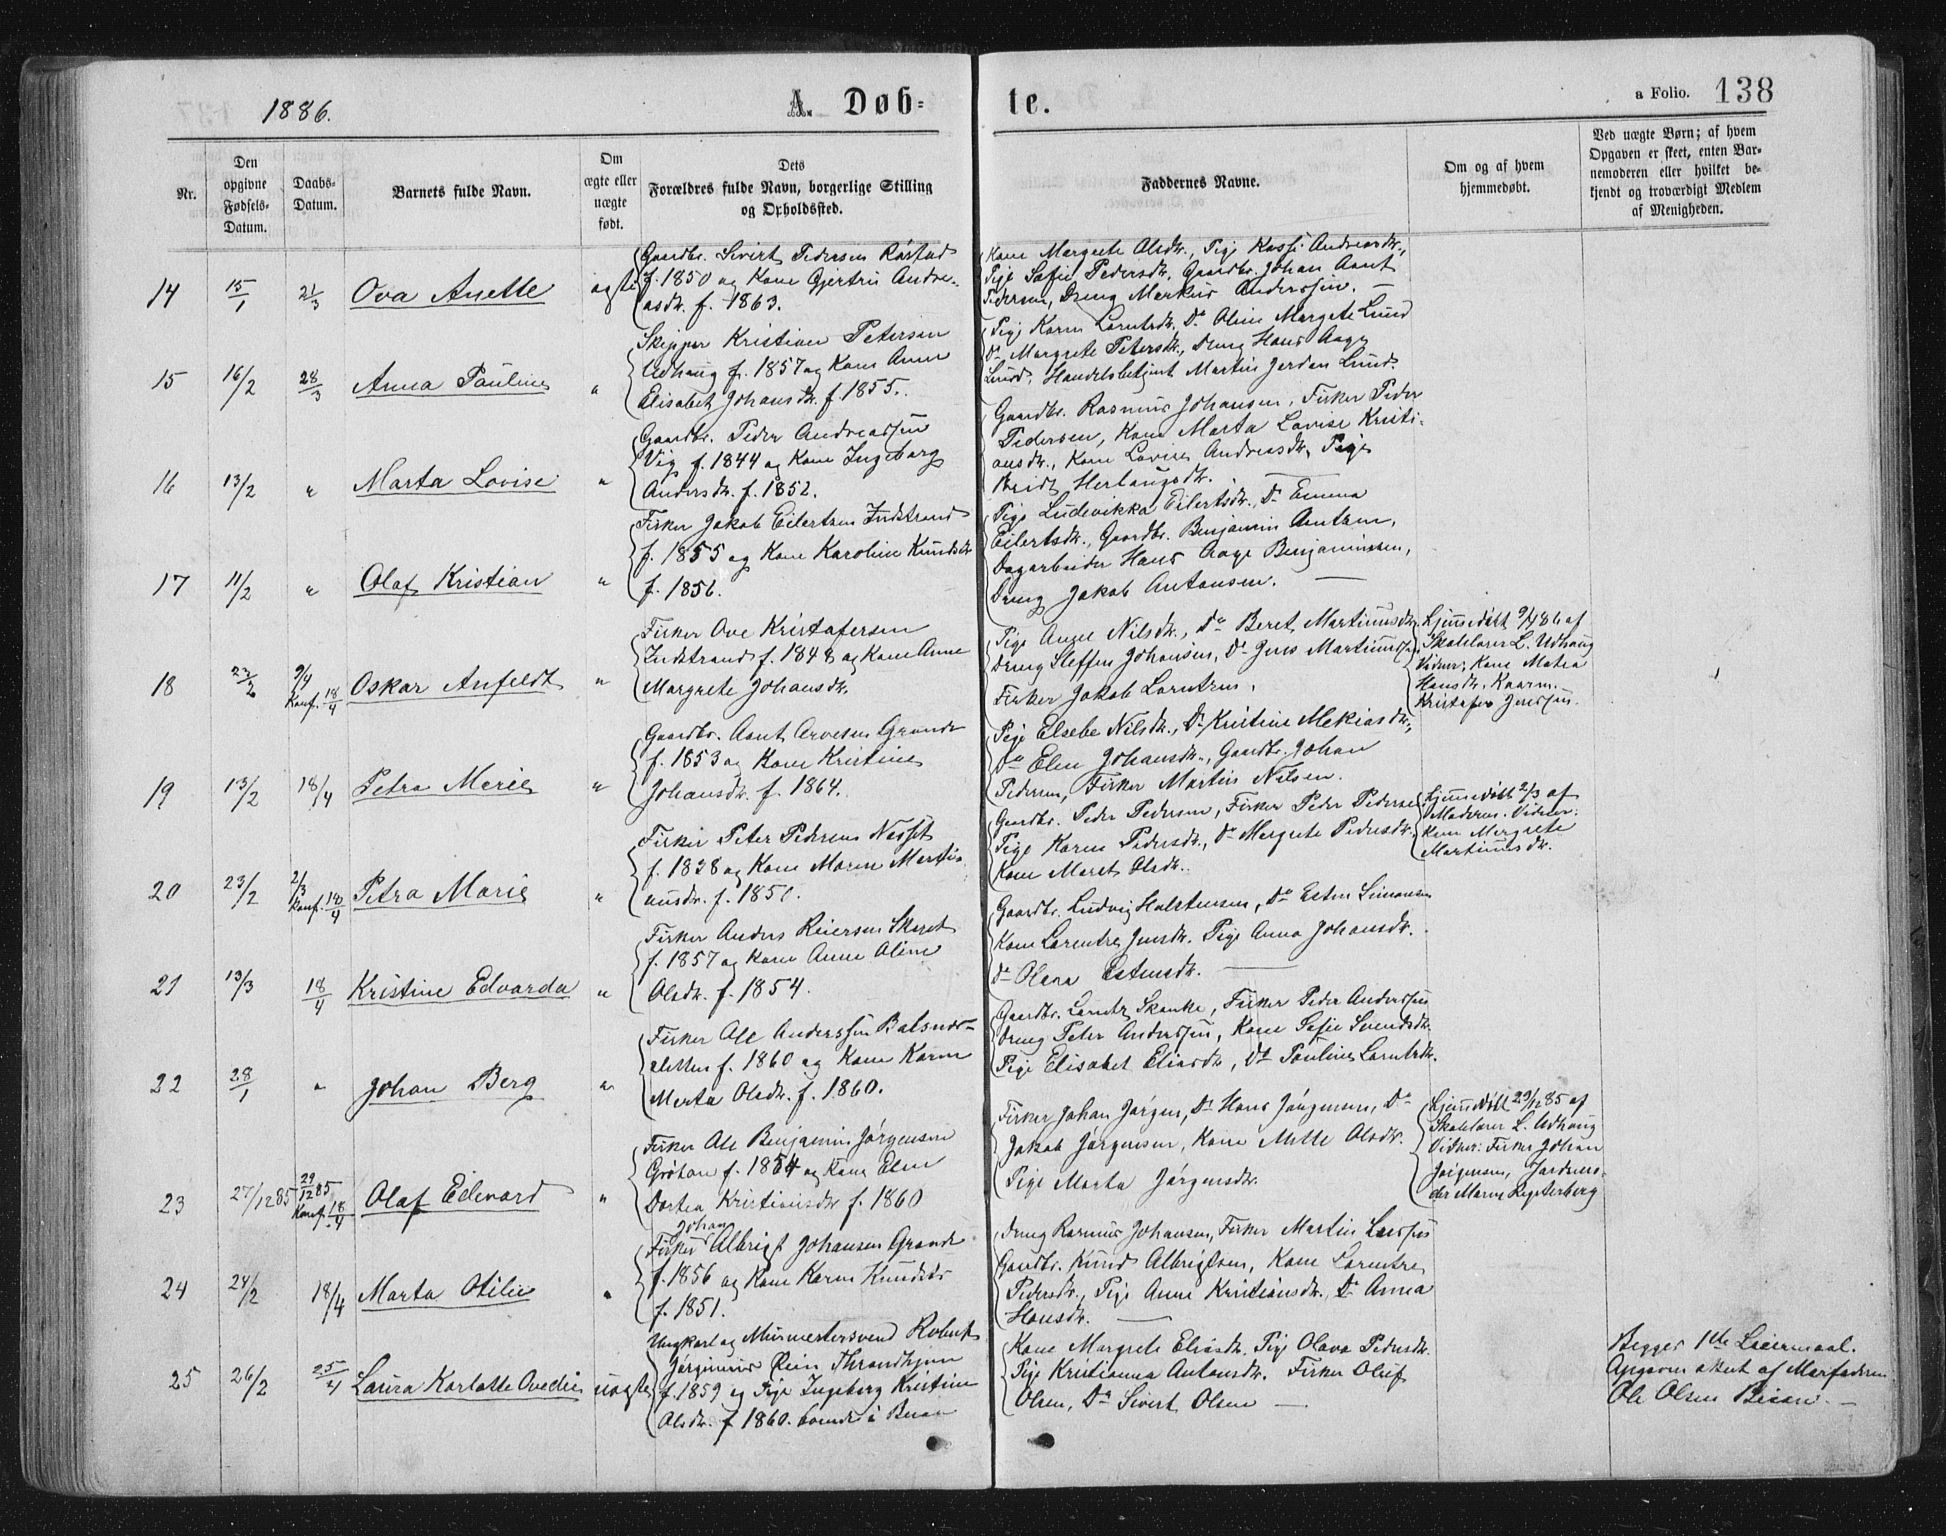 1886.
A. Døb-
te.
a Folio. 138
Nr.
Den
opgivne
Fødsels-
Datum.
Daabs-
Datum.
Barnets fulde Navn.
Om
ægte eller
uægte
født.
Dets
Forældres fulde Navn, borgerlige Stilling
og Opholdssted.
Faddernes Navne.
Om og af hvem
hjemmedøbt.
Ved uægte Børn; af hvem
Opgaven er skeet, enten Bar-
nemoderen eller hvilket be-
kjendt og troværdigt Medlem
af Menigheden.
14
15/1
21/3
Ova Anette
ægte
Gaardbr. Sivert Pedersen Røstad
f. 1850 og Kone Gjertru Andre-
asdr. f. 1863.
Kone Margrete Olsdr., Pige Andreasdr.,
Pige Sofie Pedersdr. Gaardbr. Johan Aant
Pedersen, Dreng Markus Anderssen. —
15
16/2
28/3
Anna Pauline
"
Skipper Kristian Petersen
Udhaug f. 1857 og Kone Anne
Elisabet Johansdr. f. 1855.
Pige Karen Lorntsdr., Do Oline Margrete Lund
Do Margrete Petersdr., Dreng Hans Aage
Lund, Handelsbetjent Martin Jordan Lund.
16
13/2
"
Marta Lovise
"
Gaardbr. Peder Andreassen
Vig f. 1844 og Kone Ingeborg
Andersdr. f. 1852.
Gaardbr. Rasmus Johansen, Fisker Peder
Pedersen, Kone Marta Lovise Kristi-
ansdr., Kone Lovise Andreasdr., Pige
Herlaugsdr.
17
11/2
"
Olaf Kristian
"
Fisker Jakob Eilertsen Indstrand
f. 1855 og Kone Karoline Knudsdr
f. 1856.
Pige Ludevikka Eilertsdr., Do Emma
Eilertsdr., Gaardbr. Benjamin Aantsen,
Dagarbeider Hans Aage Benjaminssen,
Dreng Jakob Antonsen. —
18
23/2
9/4
Konf. 18/4
Oskar Anfeldt
"
Fisker Ove Kristofersen
Indstrand f. 1848 og Kone Anne
Margrete Johansdr.
Pige Anne Nilsdr., Do Beret Martinusdr.
Dreng Steffen Johansen, Do Jens Martinussen,
Fisker Jakob Lorntsen.
Hjemmedøbt 9/4 86 af
Skolelærer L. Udhaug
Vidner: Kone Matea
Hansdr., Kaarm.
Kristofer Jenssen.
19
13/2
18/4
Petra Merie
"
Gaardbr. Aant Arvesen Grande
f. 1853 og Kone Kristine
Johansdr. f. 1864.
Pige Elsebe Nilsdr., Do Kristine Mekiasdr.,
Do Elen Johansdr., Gaardbr. Johan
Pedersen, Fisker Martin Nilsen.
20
23/2
2/3
Konf. 18/4
Petra Marie
"
Fisker Peter Pedersen Næsset
f. 1828 og Kone Maren Marti-
nusdr. f. 1850.
Gaardbr. Peder Pedersen, Fisker Peder Pedersen
Pige Karen Pedersdr., Do Margrete Pedersdr.
Kone Maret Olsdr.
Hjemmedøbt 2/3 af
Moderen. Vidner:
Kone Margrete
Martinusdr.
21
13/3
18/4
Kristine Edvarda
"
Fisker Anders Reiersen
f. 1857 og Kone Anne Oline
Olsdr. f. 1854.
Gaardbr. Ludvig Holstensen, Do Esten Simonsen
Kone Lorentse Jensdr. Pige Anna Johansdr.
Do Olava Estensdr. —
22
28/1
"
Johan Berg
"
Fisker Ole Anderssen Balsnes-
f. 1860 og Kone Karen
Merta Olsdr. f. 1860.
Gaardbr. Lorents Skanke, Fisker Peder Anderssen
Dreng Peter Anderssen, Kone Sofie Svendsdr.
Pige Elisabet Eliasdr., Do Pauline Lorntsdr.
23
27/12 85
29/12 85
Konf. 18/4
Olaf Edevard
"
Fisker Ole Benjamin Jørgensen
Grøtan f. 1854 og Kone Elen
Dortea Kristiansdr f. 1860
Fisker Johan Jørgen, Do Hans Jørgensen, Do
Jakob Jørgensen, Kone Mette Olsdr.
Pige Marta Jørgensdr.
Hjemmedøbt 29/12 85 af
Skolelærer L. Udhaug
Vidner: Fisker Johan
Jørgensen, Jordmo-
der Maren
24
24/2
18/4
Marta Otilie
"
Johan
Fisker Albrigt Johansen Grande
f. 1856 og Kone Karen Knudsdr
f. 1851.
Dreng Rasmus Johansen, Fisker Martin Larssen
Gaardbr. Knud Albrigtsen, Kone Lorentse
Pedersdr., Pige Anne Kristiansdr., Do Anna
Hansdr. —
25
26/2
25/4
Laura Karlotte Ovedie
uægte
Ungkarl og Murmestersvend
Jørginius Øien Throndhjem
f. 1859 og Pige Ingeborg Kristine
Olsdr. f. 1860.
Kone Margrete Eliasdr. Pige Olava Pedersdr.
Pige Kristianna Antonsdr. Fisker Oluf
Olsen, Do Sivert Olsen —
Begges 1ste Leiermaal.
Opgaven skeet af Morfaderen
Ole Olsen —